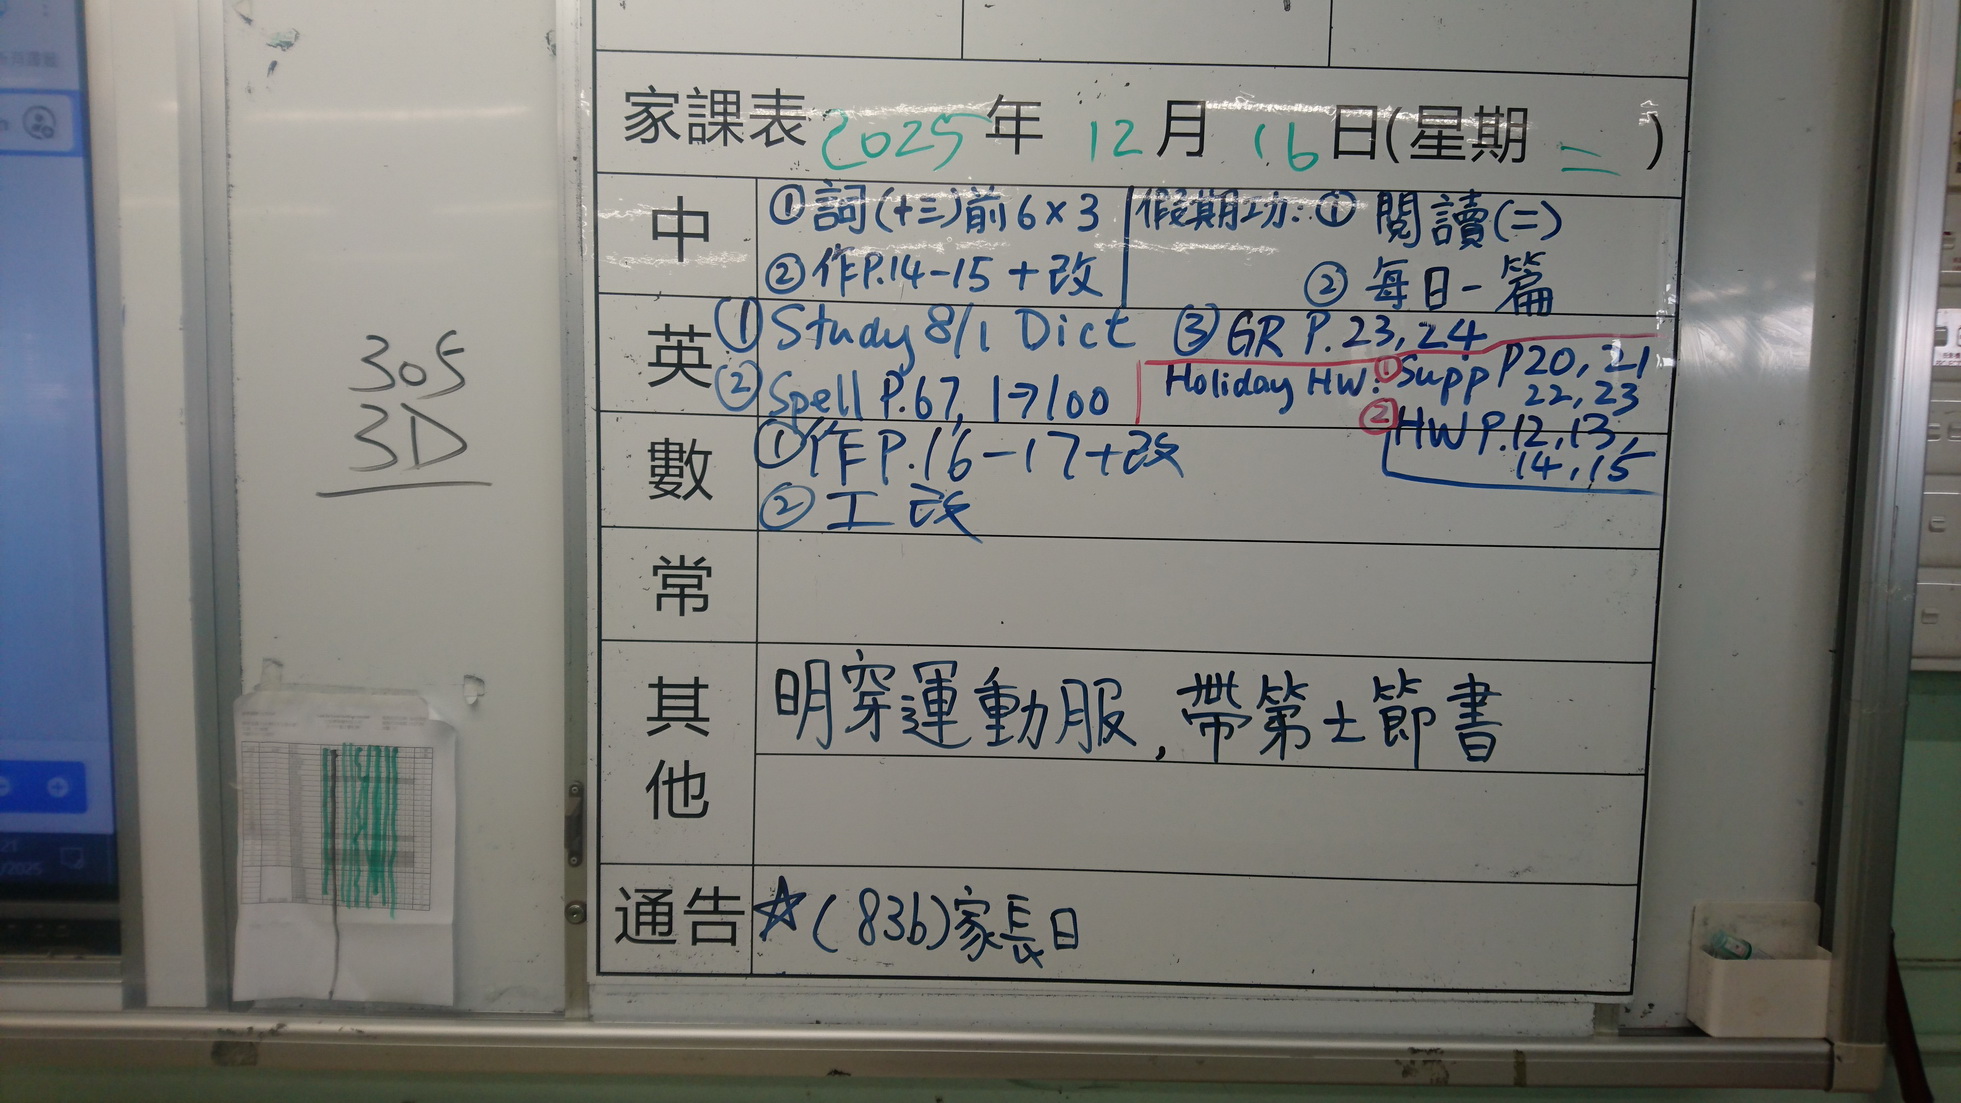 家課表 2025年 12月 16日(星期二)
中
①詞(十三)前6×3
②作P.14-15+改
假期功: ①閱讀(二)
②每日一篇
英
①Study 8/1 Dict
②Spell P.67, 1→100
③GR P.23,24
Holiday HW: ①Supp P20,21
22,23
②HW P.12,13,
14,15
數
①作P.16-17+改
②工改
常
其他
明穿運動服,帶第士節書
通告
☆(83b)家長日
305
3D